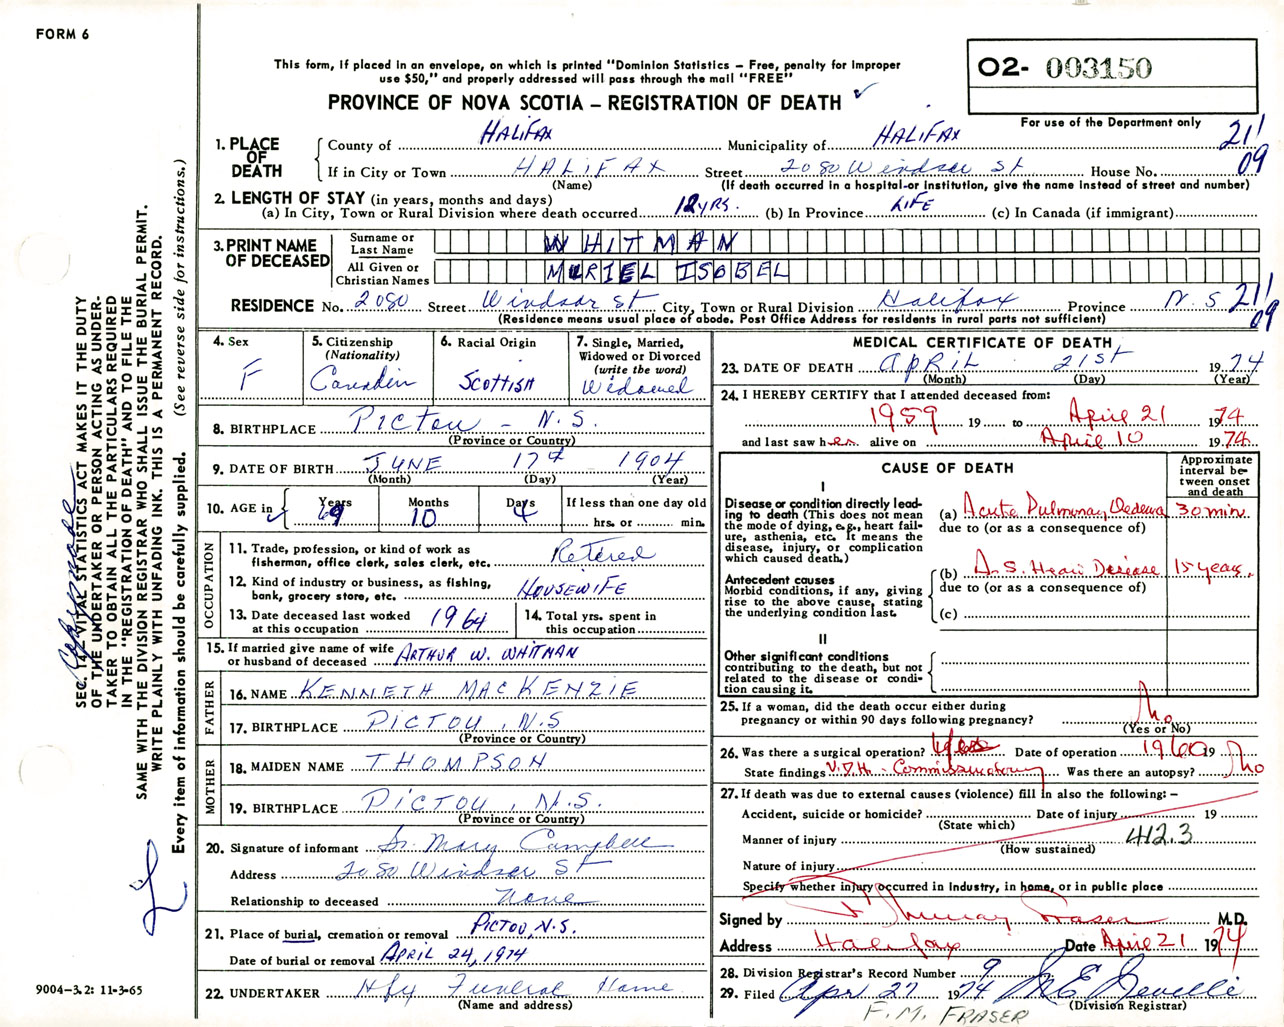 FORM 6
This form, if placed in an envelope, on which is printed "Dominion Statistics – Free, penalty for improper
use $50," and properly addressed will pass through the mail "FREE"
PROVINCE OF NOVA SCOTIA – REGISTRATION OF DEATH ✓
02- 003150
For use of the Department only
21/
09
1. PLACE OF DEATH
County of HALIFAX Municipality of HALIFAX
If in City or Town HALIFAX Street 2080 Windsor St House No.
(Name) (If death occurred in a hospital or institution, give the name instead of street and number)
2. LENGTH OF STAY (in years, months and days)
(a) In City, Town or Rural Division where death occurred 12 YRS. (b) In Province LIFE (c) In Canada (if immigrant)
3. PRINT NAME OF DECEASED
Surname or Last Name WHITMAN
All Given or Christian Names MURIEL ISOBEL
RESIDENCE No. 2080 Street Windsor St City, Town or Rural Division Halifax Province N.S 21/
09
(Residence means usual place of abode. Post Office Address for residents in rural parts not sufficient)
4. Sex F
5. Citizenship (Nationality) Canadien
6. Racial Origin Scottish
7. Single, Married, Widowed or Divorced (write the word) Widowed
8. BIRTHPLACE PICTOU – N.S.
(Province or Country)
9. DATE OF BIRTH JUNE 17th 1904
(Month) (Day) (Year)
10. AGE in Years 69 Months 10 Days 4
If less than one day old
hrs. or min.
OCCUPATION
11. Trade, profession, or kind of work as
fisherman, office clerk, sales clerk, etc. Retired
12. Kind of industry or business, as fishing,
bank, grocery store, etc. HOUSEWIFE
13. Date deceased last worked
at this occupation 1964
14. Total yrs. spent in
this occupation
15. If married give name of wife
or husband of deceased ARTHUR W. WHITMAN
FATHER
16. NAME KENNETH MACKENZIE
17. BIRTHPLACE PICTOU, N.S
(Province or Country)
MOTHER
18. MAIDEN NAME THOMPSON
19. BIRTHPLACE PICTOU, N.S.
(Province or Country)
20. Signature of informant Sr. Mary Campbell
Address 2080 Windsor St
Relationship to deceased None
21. Place of burial, cremation or removal PICTOU, N.S.
Date of burial or removal APRIL 24, 1974
22. UNDERTAKER Hfx Funeral Home
(Name and address)
MEDICAL CERTIFICATE OF DEATH
23. DATE OF DEATH APRIL 21ST 1974
(Month) (Day) (Year)
24. I HEREBY CERTIFY that I attended deceased from:
1959 19 to April 21 1974
and last saw her alive on April 10 1974
CAUSE OF DEATH
Approximate
interval be-
tween onset
and death
I
Disease or condition directly lead-
ing to death (This does not mean
the mode of dying, e.g., heart fail-
ure, asthenia, etc. It means the
disease, injury, or complication
which caused death.)
(a) Acute Pulmonary Oedema 30 min.
due to (or as a consequence of)
Antecedent causes
Morbid conditions, if any, giving
rise to the above cause, stating
the underlying condition last.
(b) A.S. Heart Disease 15 years.
due to (or as a consequence of)
(c)
II
Other significant conditions
contributing to the death, but not
related to the disease or condi-
tion causing it.
25. If a woman, did the death occur either during
pregnancy or within 90 days following pregnancy? No
(Yes or No)
26. Was there a surgical operation? Yes Date of operation 1960 19
State findings Was there an autopsy? No
27. If death was due to external causes (violence) fill in also the following: –
Accident, suicide or homicide? Date of injury 19
(State which)
Manner of injury 412.3
(How sustained)
Nature of injury
Specify whether injury occurred in industry, in home, or in public place
Signed by Murray Fraser M.D.
Address Halifax Date April 21 1974
28. Division Registrar's Record Number 9
29. Filed Apr 27 1974
(Division Registrar)
F.M. FRASER
SEC. 14 – VITAL STATISTICS ACT MAKES IT THE DUTY
OF THE UNDERTAKER OR PERSON ACTING AS UNDER-
TAKER TO OBTAIN ALL THE PARTICULARS REQUIRED
IN THE "REGISTRATION OF DEATH" AND TO FILE THE
SAME WITH THE DIVISION REGISTRAR WHO SHALL ISSUE THE BURIAL PERMIT.
WRITE PLAINLY WITH UNFADING INK. THIS IS A PERMANENT RECORD.
Every item of information should be carefully supplied. (See reverse side for instructions.)
9004-3.2: 11-3-65